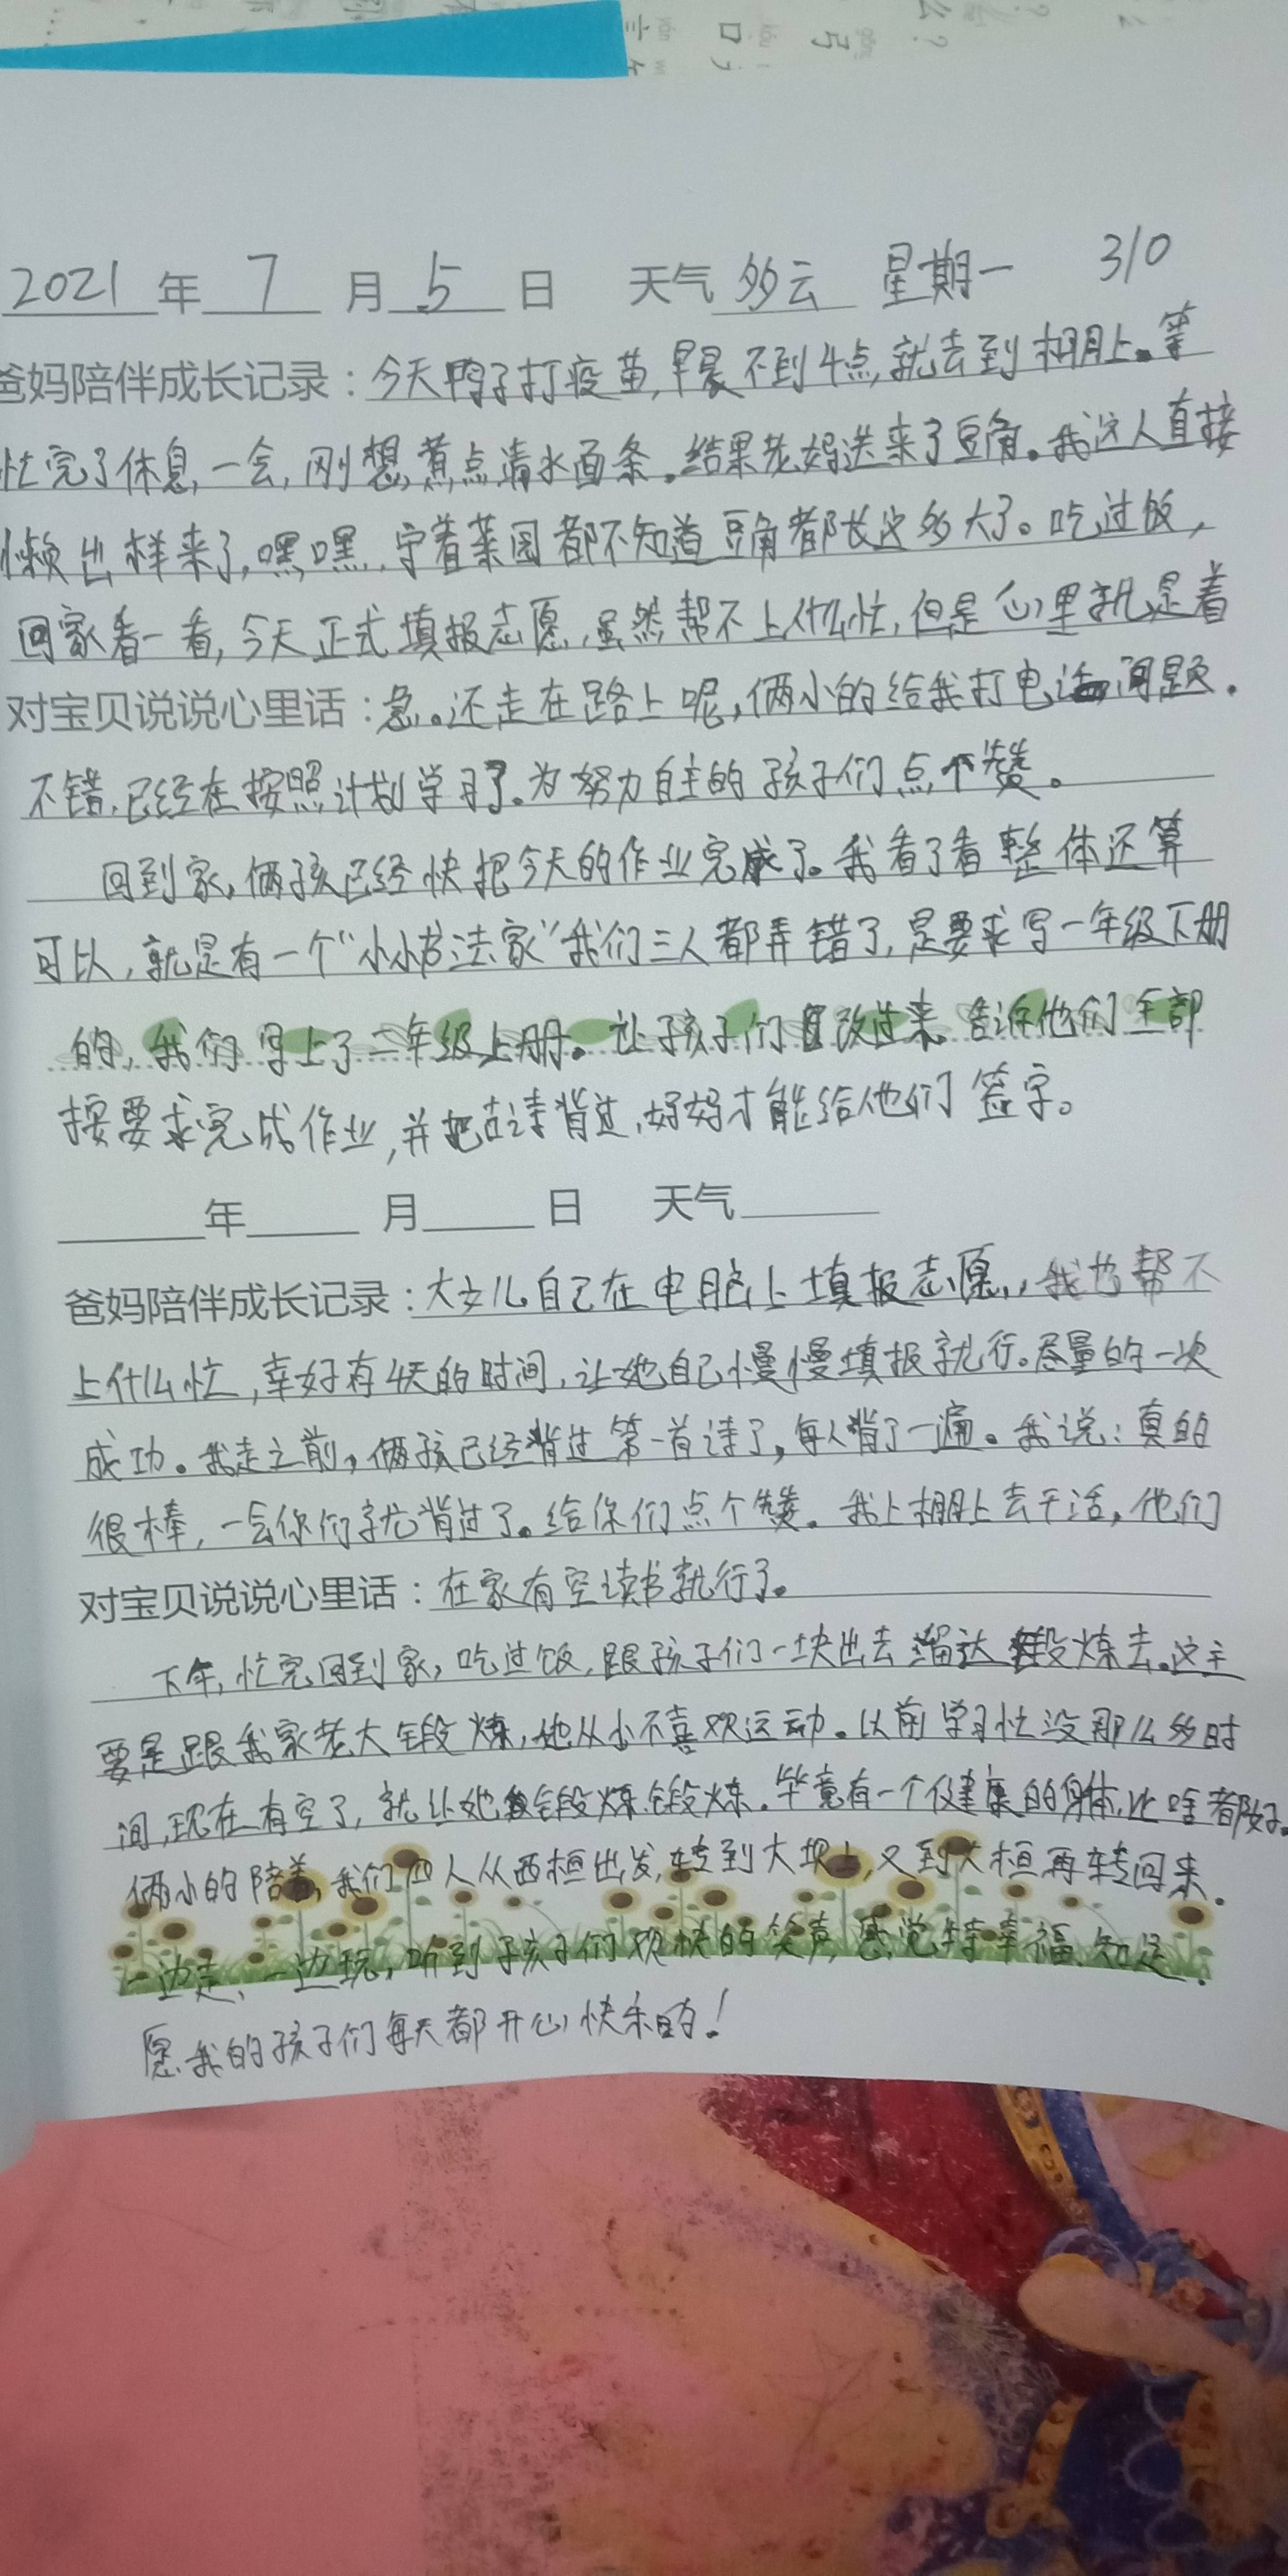 2021年 7 月 5 日 天气 多云 星期一 310
爸妈陪伴成长记录：今天鸭子打疫苗,早晨不到4点,就去到棚上。等
忙完了休息,一会,刚想煮点清水面条。结果老妈送来了豆角。我这人直接
懒出样来了,嘿嘿,守着菜园都不知道豆角都长这多大了。吃过饭,
回家看一看,今天正式填报志愿,虽然帮不上什么忙,但是心里就是着
对宝贝说说心里话：急。还走在路上呢,俩小的给我打电话问题.
不错,已经在按照计划学习了。为努力自主的孩子们点个赞。
回到家,俩孩已经快把今天的作业完成了。我看了看整体还算
可以,就是有一个“小小书法家”我们三人都弄错了,是要求写一年级下册
的,我们写上了二年级上册。让孩子们改过来。告诉他们全部
按要求完成作业,并把古诗背过,妈妈才能给他们签字。
年 月 日 天气
爸妈陪伴成长记录：大女儿自己在电脑上填报志愿,,我也帮不
上什么忙,幸好有4天的时间,让她自己慢慢填报就行。尽量的一次
成功。我走之前,俩孩已经背过第一首诗了,每人背了一遍。我说：真的
很棒,一会你们就背过了。给你们点个赞。我上棚上去干活,他们
对宝贝说说心里话：在家有空读书就行了。
下午,忙完回到家,吃过饭,跟孩子们一块出去溜达锻炼去。这主
要是跟我家老大锻炼,她从小不喜欢运动。以前学习忙没那么多时
间,现在有空了,就让她锻炼锻炼。毕竟有一个健康的身体,比啥都好。
俩小的陪着,我们四人从西桓出发,转到大坝上,又到大桓再转回来.
一边走、一边玩,听到孩子们欢快的笑声,感觉特幸福、知足.
愿我的孩子们每天都开心快乐的!